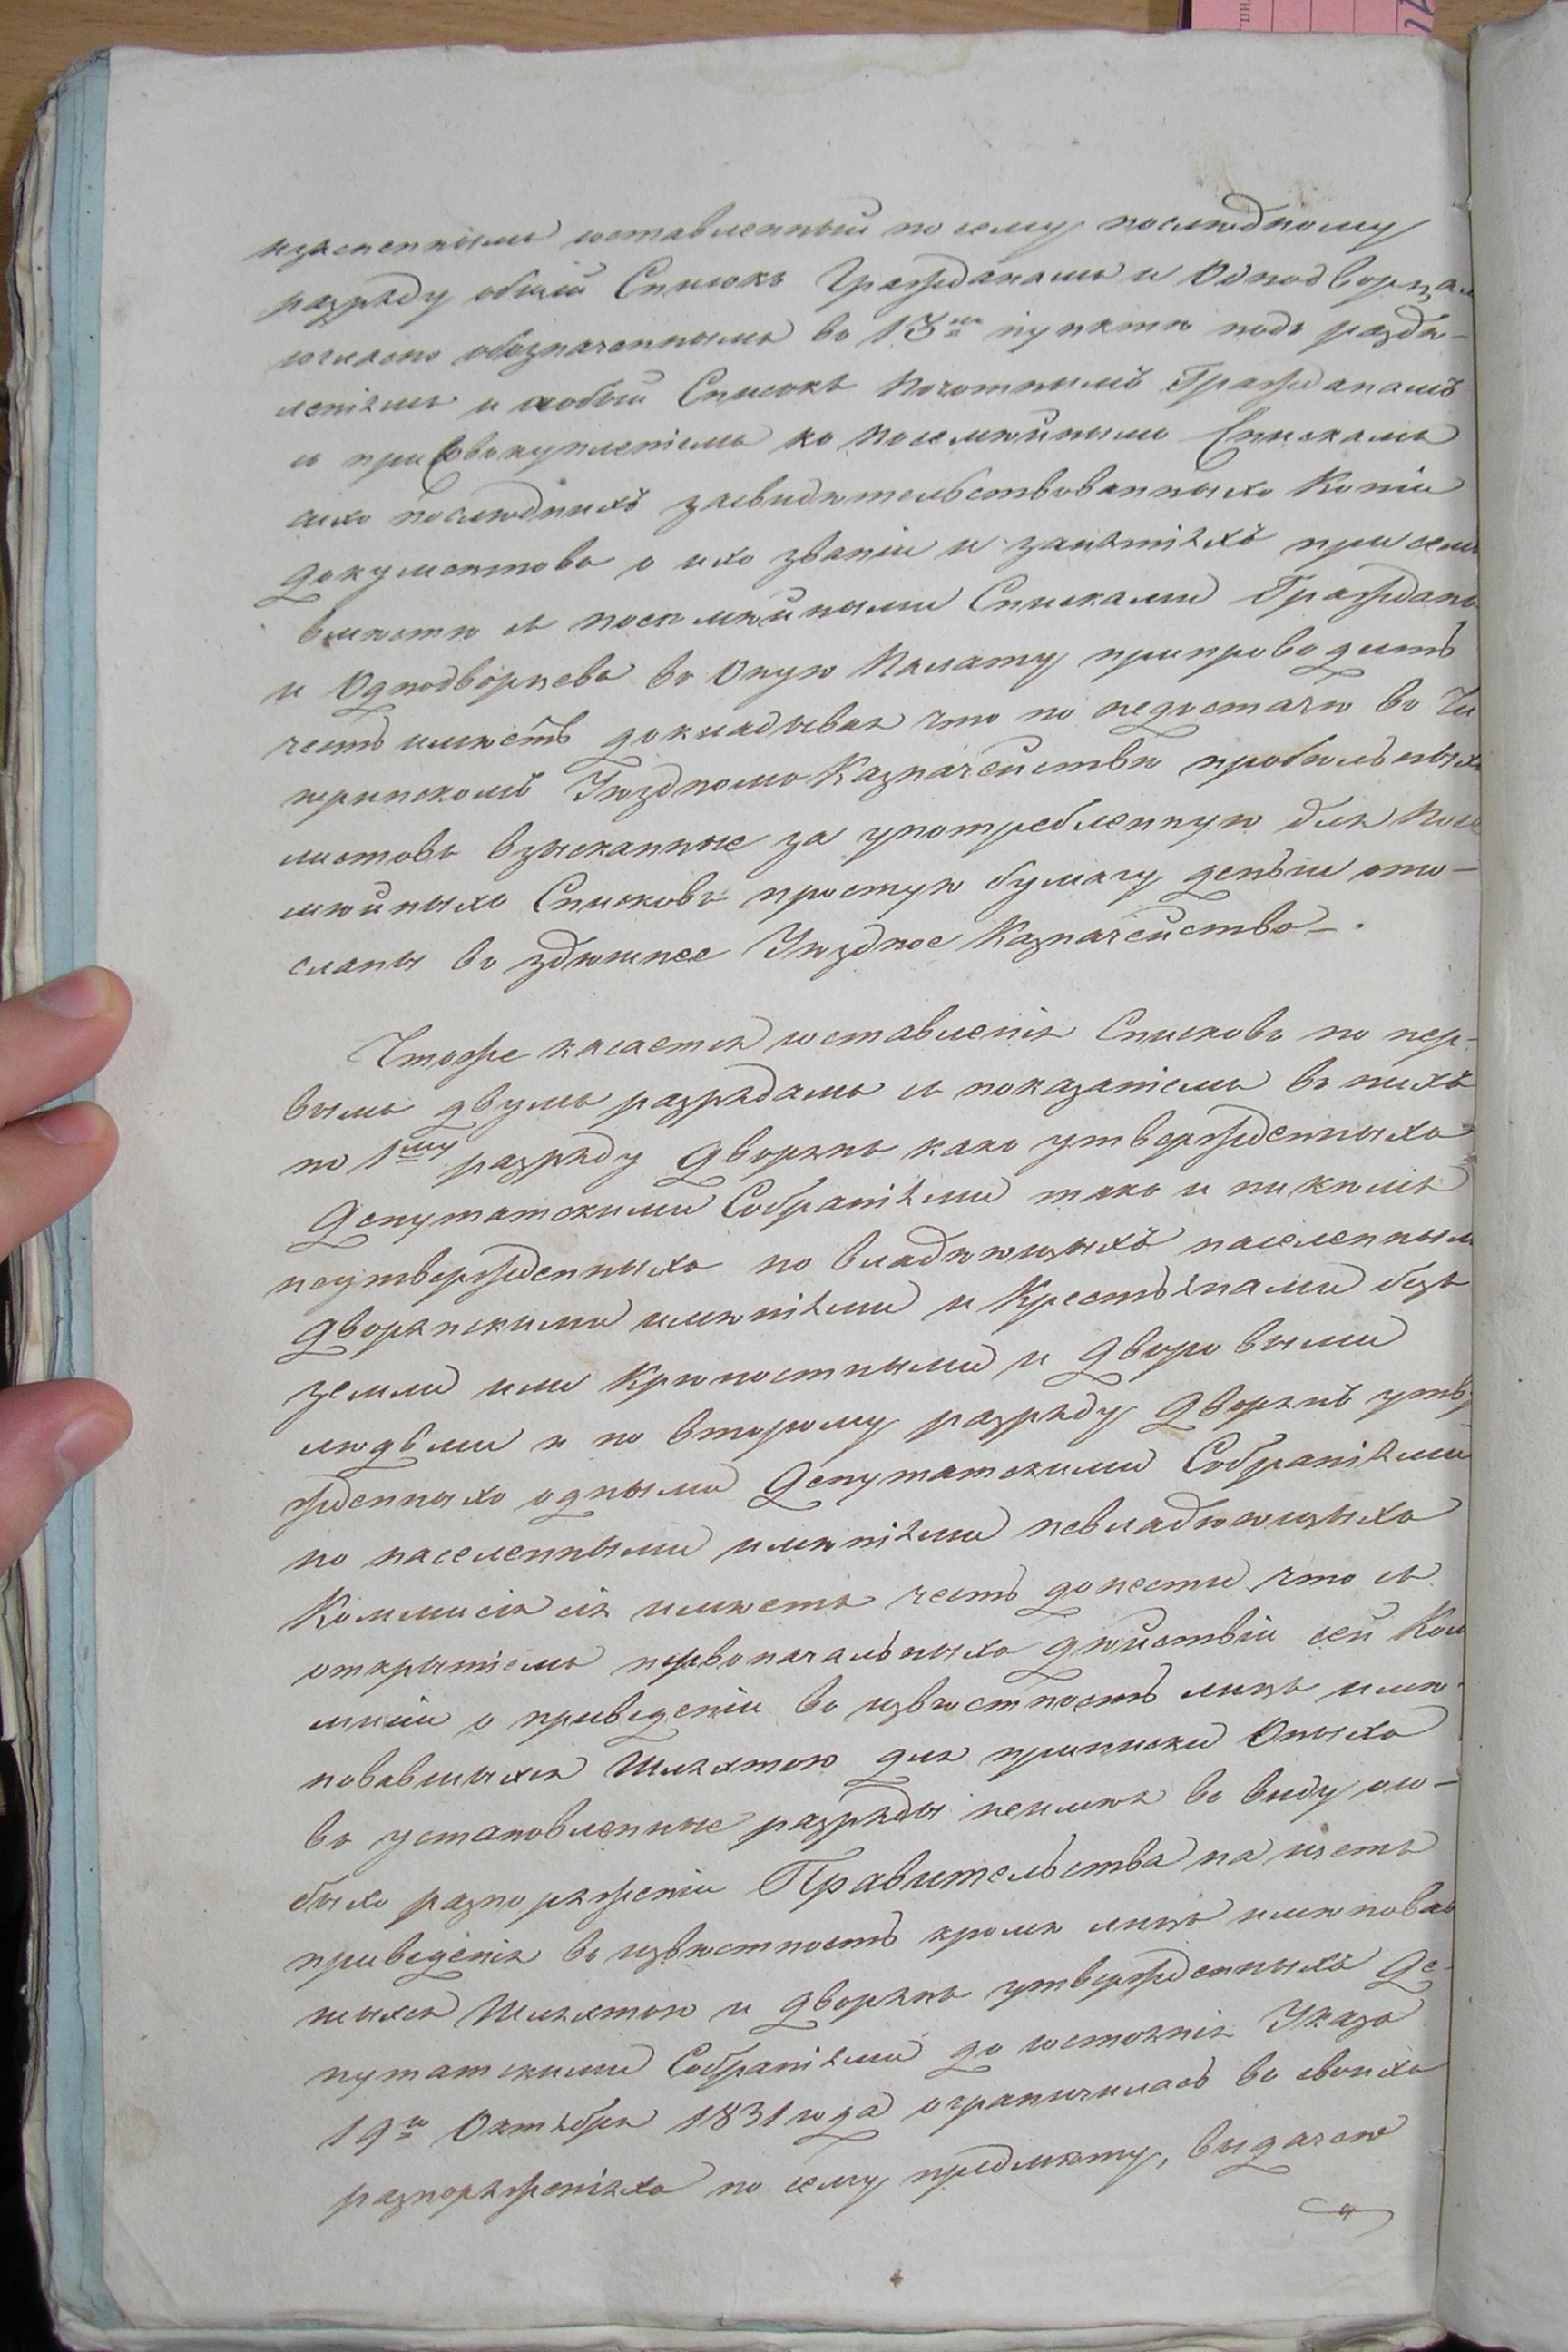 изясненнымъ составленный по сему послѣдному
разряду общій Списокъ Гражданамъ и Однодворцам
согласно обозначеннымъ въ 13мъ пунктѣ подъ раздѣ-
леніямъ и особый Списокъ Почотнымъ Гражданамъ
съ присовокупленіемъ къ посемѣйнымъ Спискамъ
сихъ послѣднихъ засвидѣтельствованныхъ Копіи
документовъ о ихъ званіи и занятіяхъ при семъ
вмѣстѣ съ посемѣйными Списками Гражданъ
и Однодворцевъ въ Оную Палату припроводить
честь имѣетъ докладывая что по недостачѣ въ Чи
гиринскомъ Уѣздномъ Казначействѣ пробѣльныхъ
листовъ взысканные за употребленную для Посе
мѣйныхъ Списковъ простую бумагу деньги ото-
сланы въ здѣшнее Уѣздное Казначейство.
Чтоже касается составленія Списковъ по пер-
вымъ двумъ разрядамъ съ показаніемъ въ нихъ
по 1му разряду дворянъ какъ утвержденныхъ
Депутатскими Собраніями такъ и никѣмъ
неутвержденныхъ но владѣющихъ населенным
дворянскими имѣніями и Крестьянами безъ
земли или Крѣпостными и дворовыми
людьми и по второму разряду дворянъ утвер
жденныхъ одными Депутатскими Собраніями
но населенными имѣніями невладѣющихъ
Коммисія сія имѣетъ честь донести что съ
открытіемъ первоначальныхъ дѣйствій сей Ком
мисіи о приведеніи въ извѣстность лицъ имѣ-
новавшыхся Шляхтою для приписки Оныхъ
въ установленные разряды неимѣя въ виду осо-
быхъ разпоряженій Правительства на щетъ
приведенія въ извѣстность кромѣ лицъ имѣновав
шыхся Шляхтою и дворянъ утвержденныхъ Де-
путатскими Собраніями до состоянія Указа
19го Октября 1831 года ограничилась въ своихъ
разпоряженіяхъ по сему предмѣту, выдачею